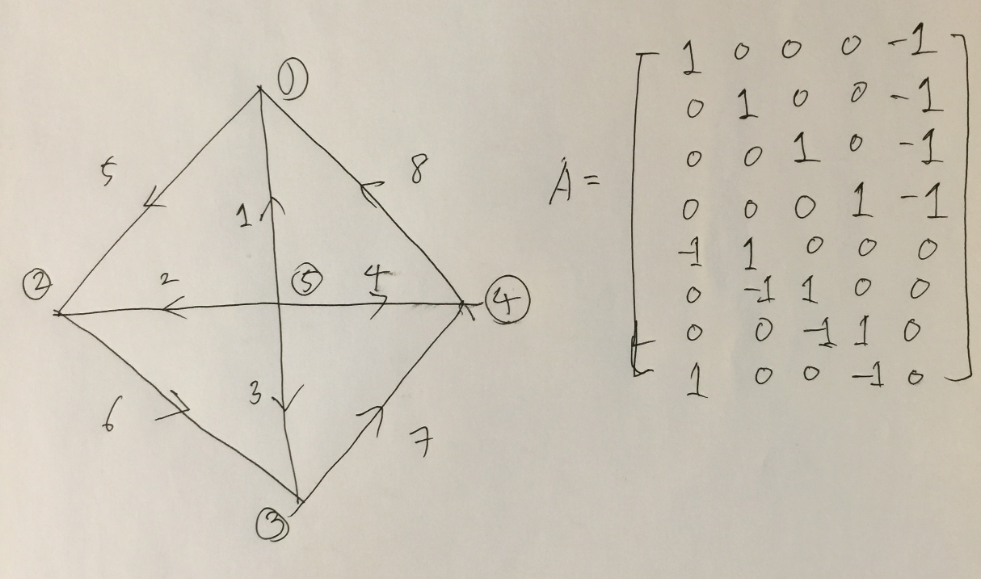 ①
5
8
1
②
2
⑤
4
④
3
6
7
③
A =
1 0 0 0 -1
0 1 0 0 -1
0 0 1 0 -1
0 0 0 1 -1
-1 1 0 0 0
0 -1 1 0 0
0 0 -1 1 0
1 0 0 -1 0